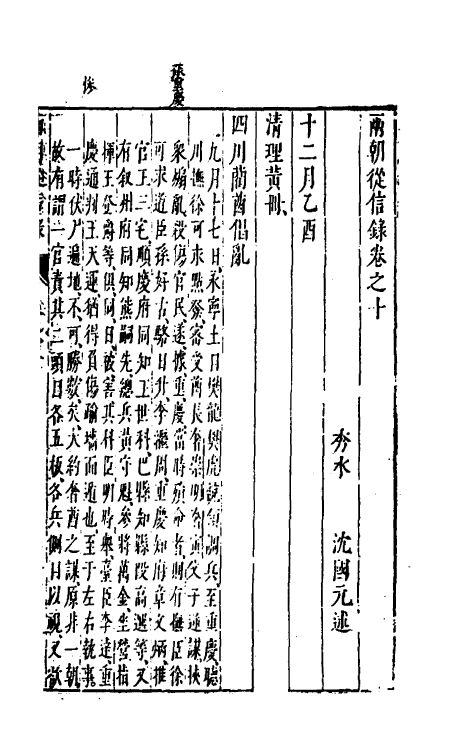 兩朝從信錄卷之十
秀水 沈國元 述
十二月乙酉
清理黃冊
四川藺酋倡亂
九月十七日永寧土目樊龍樊虎
調兵至重慶聽
川撫徐可求點發
酋長奢崇明
父子
謀挾
眾煽亂殺傷官民遂據重慶當時殞命者則有撫臣徐
可求道臣孫好古駱日升李繼周重慶知府章文炳推
官王三宅順慶府同知王世科巴縣知縣段高選等又
有叙州府同知熊嗣先總兵黃守魁參將萬金王登
指
揮王登爵等俱同日被害其科臣明時舉臺臣李達重
慶通判王天運猶得負傷踰墻而遁也至于左右執事
一時伏尸遍地不可勝數矣大約奢酋之謀原非一朝
故有謂二官責其二頭目各五板各兵側目以視又欲
孫重慶